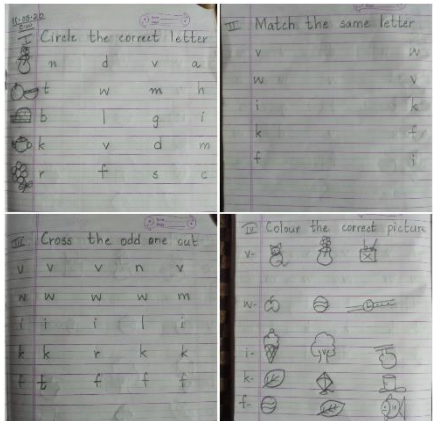 I Circle the correct letter
n d v a
t w m h
b l g i
k v d m
r f s c
II Match the same letter
v w
w v
i k
k f
f i
III Cross the odd one out
v v v n v
w w w w m
i i i l i
k k r k k
f t f f f
IV Colour the correct picture
v-
w-
i-
k-
f-